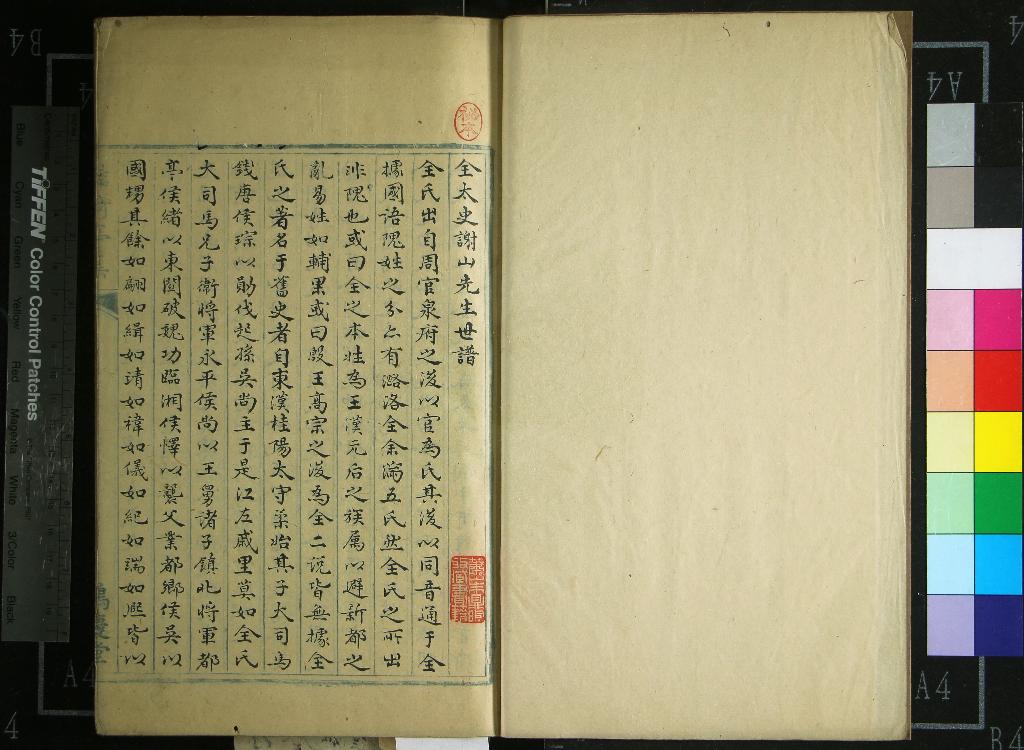 全太史謝山先生世譜
全氏出自周官泉府之後以官為氏其後以同音通于全
據國語隗姓之分亦有潞洛全余滿五氏然全氏之所出
非隗也或曰全之本姓為王漢元后之族屬以避新都之
亂易姓如輔果或曰殷王高宗之後為全二說皆無據全
氏之著名于舊史者自東漢桂陽太守柔始其子大司馬
錢唐侯琮以勛伐起孫吳尚主于是江左戚里莫如全氏
大司馬兄子衛將軍永平侯尚以王舅諸子鎮北將軍都
亭侯緒以東關破魏功臨湘侯懌以襲父業都鄉侯吳以
國甥其餘如翩如緝如靖如禕如儀如紀如端如熙皆以
TIFFEN Color Control Patches
Blue
Cyan
Green
Yellow
Red
Magenta
White
3/Color
Black
A4
B4
A4
A4
B4